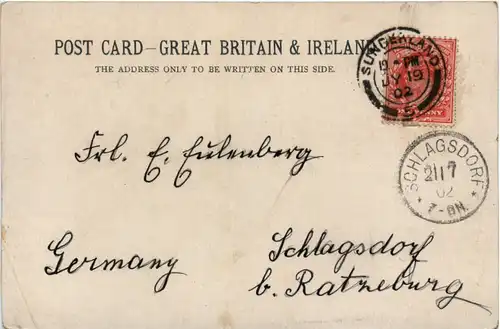 POST CARD—GREAT BRITAIN & IRELAND
THE ADDRESS ONLY TO BE WRITTEN ON THIS SIDE.
SUNDERLAND
PM
JY 19
02
SCHLAGSDORF
21 7
02
* 7-8N. *
Frl. E. Eulenberg
Schlagsdorf
Germany
b. Ratzeburg